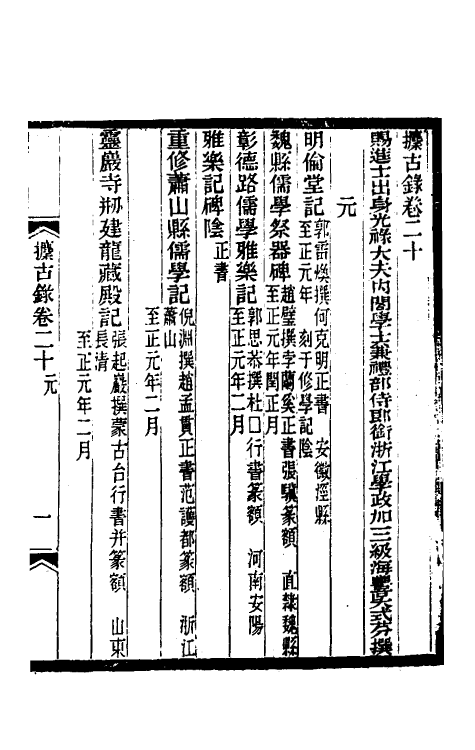 攗古錄卷二十
賜進士出身光祿大夫內閣學士兼禮部侍郎銜浙江學政加三級海豐吳式芬撰
元
明倫堂記
郭霑煥撰何克明正書 安徽涇縣
至正元年 刻于修學記陰
魏縣儒學祭器碑
趙璧撰李蘭奚正書張驥篆額 直隸魏縣
至正元年閏正月
彰德路儒學雅樂記
郭思恭撰杜□行書篆額 河南安陽
至正元年二月
雅樂記碑陰
正書
重修蕭山縣儒學記
倪淵撰趙孟貫正書范護都篆額 浙江
蕭山
至正元年二月
靈巖寺刱建龍藏殿記
張起巖撰蒙古台行書并篆額 山東
長清
至正元年二月
攗古錄卷二十元
一